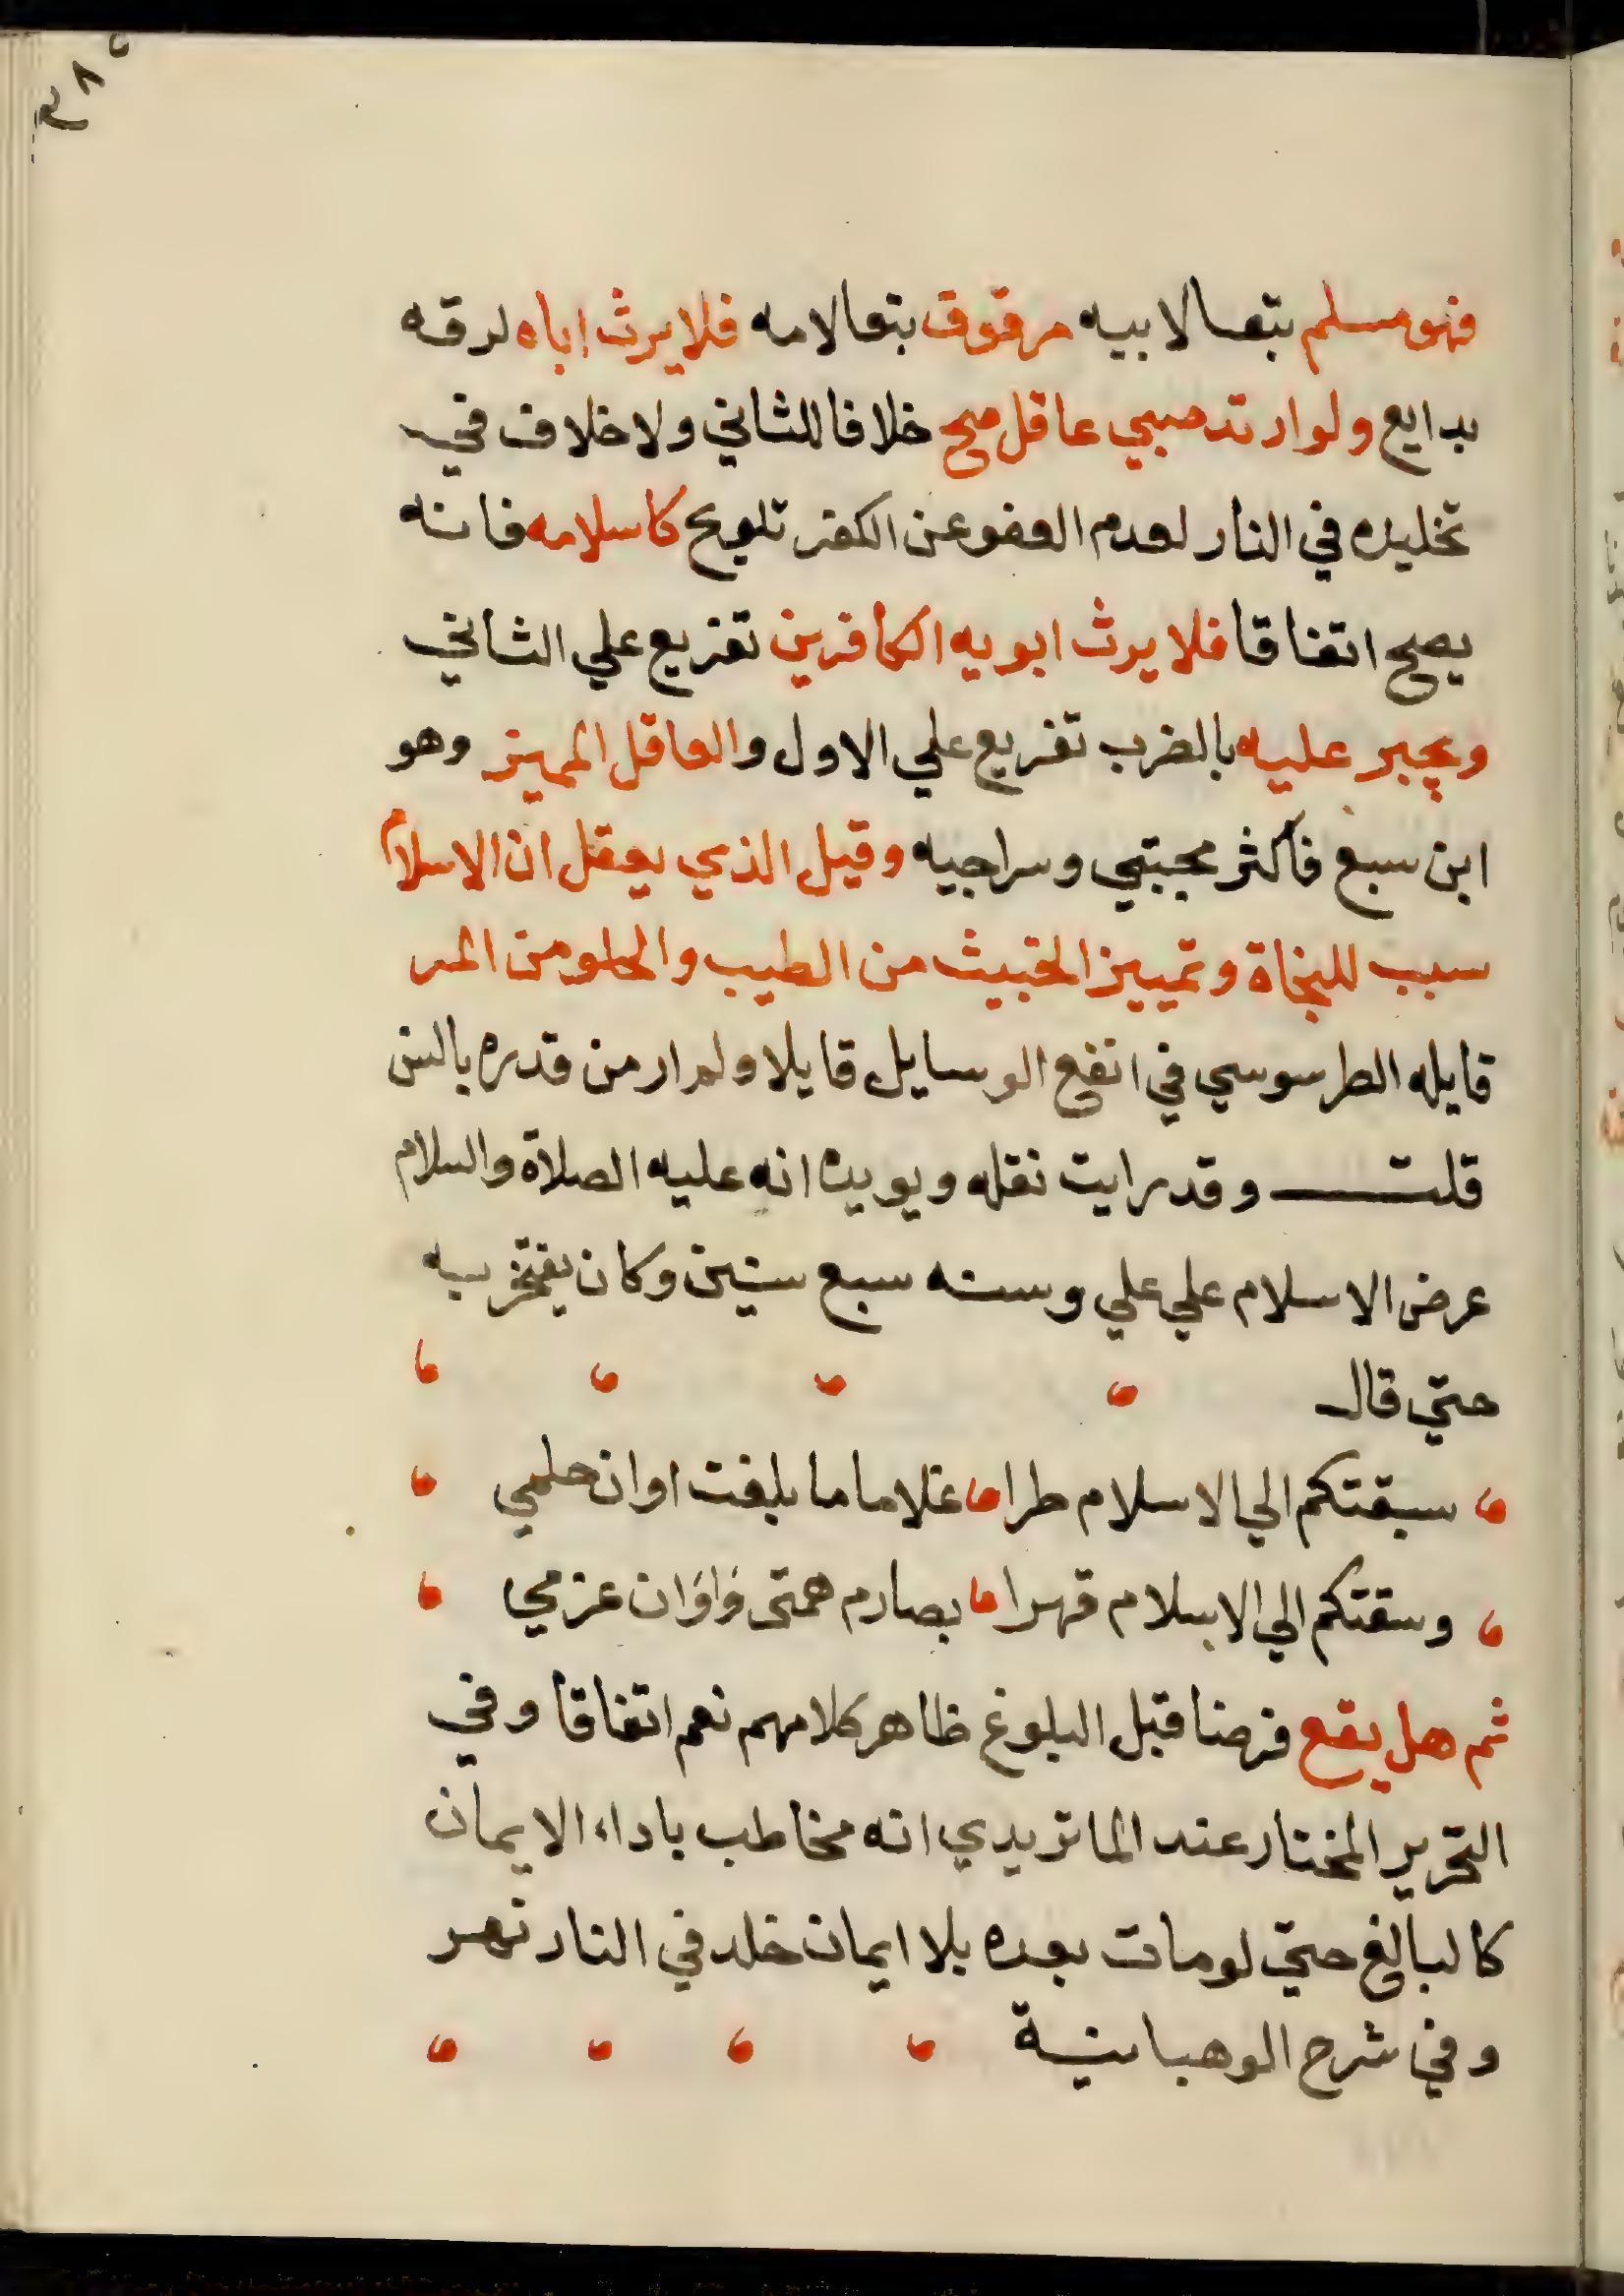 ٣٨٥
فهو مسلم بتعا لابيه مرقوق بتعا لامه فلا يرث اباه لرقه
بدايع ولو ارتد صبي عاقل صح خلافا للثاني ولا خلاف في
تخليده في النار لعدم العفو عن الكفر تلويح كاسلامه فانه
يصح اتفاقا فلا يرث ابويه الكافرين تفريع علي الثاني
ويجبر عليه بالضرب تفريع علي الاول والعاقل المميز وهو
ابن سبع فاكثر مجبتي وسراجيه وقيل الذي يعقل ان الاسلام
سبب للنجاة وتمييز الخبيث من الطيب والحلو من المر
قايله الطرسوسي في انفع الوسايل قايلا ولم ار من قدره بالسن
قلت وقد رايت نقله ويويده انه عليه الصلاة والسلام
عرض الاسلام علي علي وسنه سبع سنين وكان يفتخر به
حتي قال
سبقتكم الي الاسلام طرا غلاما ما بلغت اوان حلمي
وسقتكم الي الاسلام قهرا بصارم همتى واوان عزمي
ثم هل يقع فرضا قبل البلوغ ظاهر كلامهم نعم اتفاقا وفي
التحرير المختار عند الماتريدي انه مخاطب باداء الايمان
كالبالغ حتي لومات بعده بلا ايمان خلد في النار نهر
وفي شرح الوهبانية